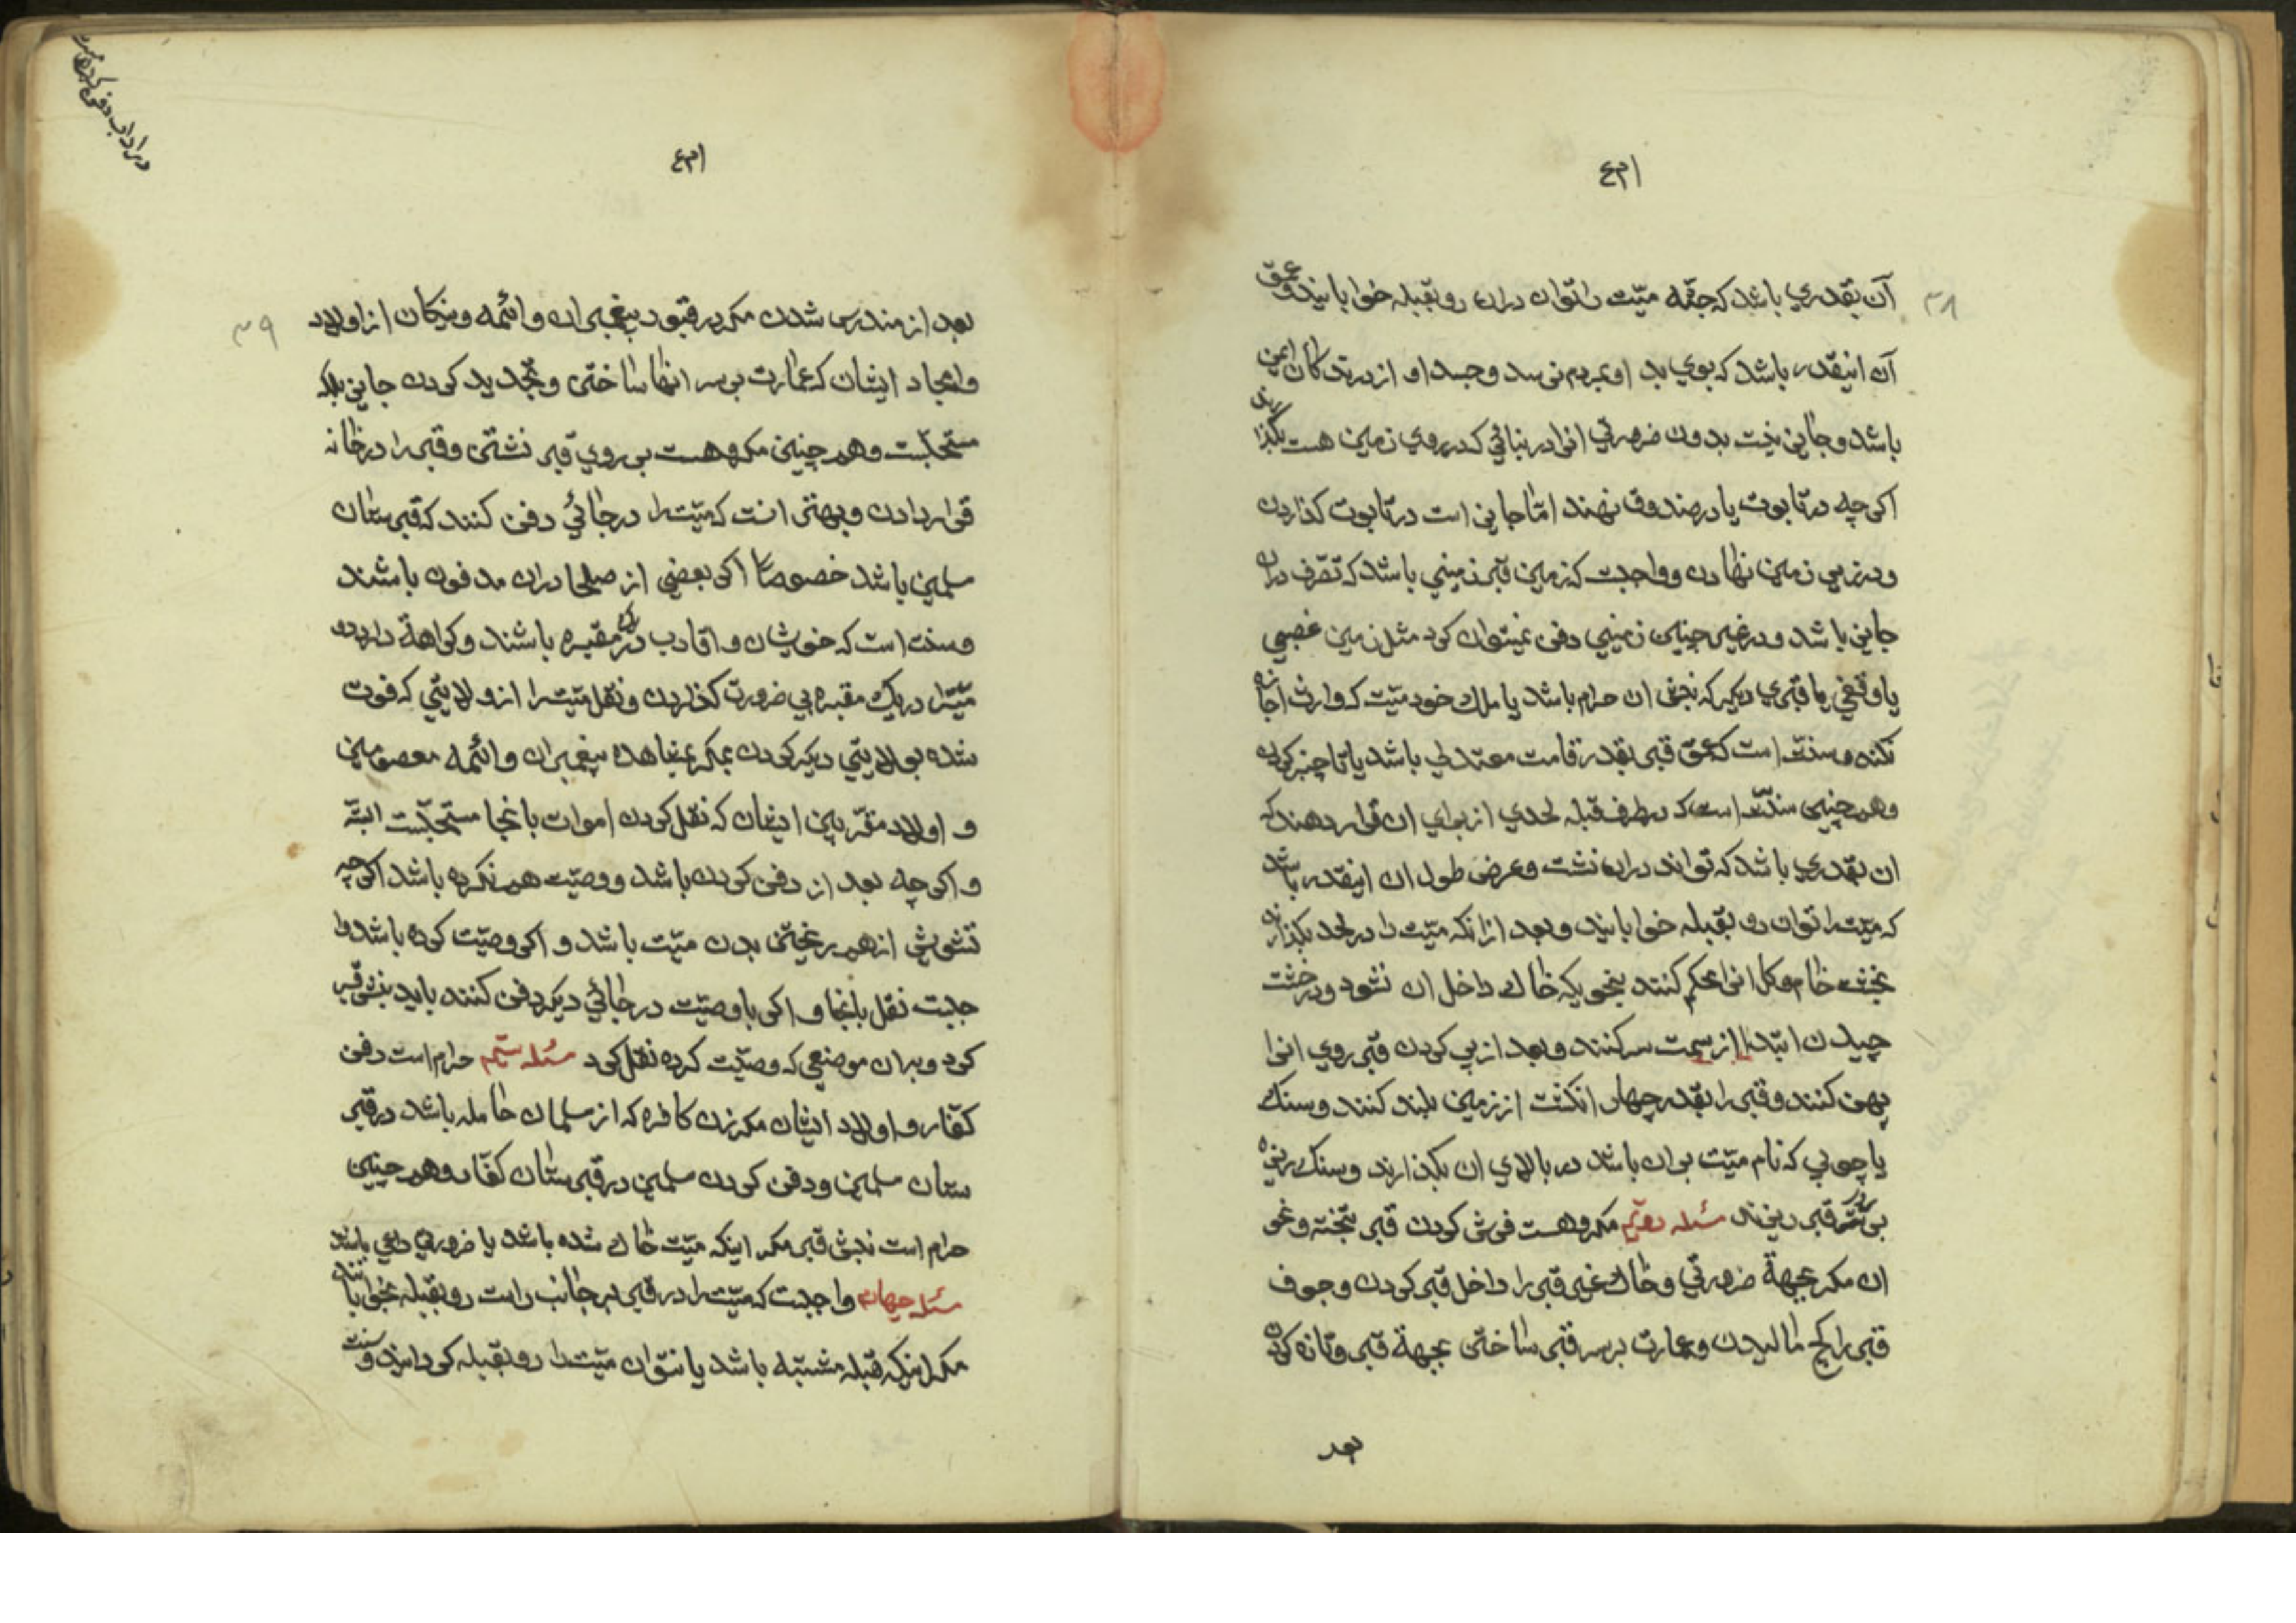 آن بقدری باشد که جثّه میّت را توان دران رو بقبله خوابانید و عمق
آن اینقدر باشد که بوی بد او بمردم نرسد و جسد او از درندکان ایمن
باشد و جایز نیست بدون ضرورتی انرا در بنائی که در روی زمین هست بکذارند
اکرچه در تابوت یا در صندوق نهند امّا جایز است در تابوت کذاردن
و در زیر زمین نهادن و واجبست که زمین قبر زمینی باشد که تصّرف دران
جایز باشد و در غیر چنین زمینی دفن نمیتوان کرد مثل زمین غصبی
یا وقفی یا قبری دیکر که نبش ان حرام باشد یا ملک خود میّت که وارث اجازه
نکند و سنّت است که عمق قبر بقدر قامت معتدلی باشد یا تا چنبر کردن
و همچنین سنّت است که بطرف قبله لحدی از برای ان قرار دهند که
ان بقدری باشد که تواند دران نشست و عرض طول ان اینقدر باشد
که میّت را توان رو بقبله خوابانید و بعد از انکه میّت را در لحد بکذارند
بخشت خام و کل انرا محکم کنند بنحویکه خاک داخل ان نشود و در خشت
چیدن ابتدا از سمت سر کنند و بعد از پر کردن قبر روی انرا
پهن کنند و قبر را بقدر چهار انکشت از زمین بلند کنند و سنک
یا چوبی که نام میّت بران باشد در بالای ان بکذارند و سنک ریزه
بر قبر ریزند مسئله دویّم مکروهست فرش کردن قبر بتخته و نحو
ان مکر بجهة ضرورتی و خاک غیر قبر را داخل قبر کردن و جوف
قبر را کج مالیدن و عمارت بر سر قبر ساختن بجهة قبر و تازه کردن
بعد
بعد از مندرس شدن مکر در قبور پیغمبران و ائمه و نیکان از اولاد
و امجاد ایشان که عمارت بر سر انها ساختن و تجدید کردن جایز بلکه
مستحبّست و همچنین مکروهست بر روی قبر نشستن و قبر را در خانه
قرار دادن و بهتر انست که میّت را در جائی دفن کنند که قبرستان
مسلمین باشد خصوصاً اکر بعضی از صلحا دران مدفون باشند
و سنت است که خویشان و اقارب در یک مقبره باشند و کراهة دارد دو
میّت را در یک مقبره بی ضرورت کذاردن و نقل میّت را از ولایتی که فوت
شده بولایتی دیکر کردن مکر بمشاهده پیغمبران و ائمه معصومین
و اولاد مقرّبین ایشان که نقل کردن اموات بانجا مستحبّست البتّه
و اکرچه بعد از دفن کردن باشد و وصیّت هم نکرده باشد اکرچه
تشویش از هم ریختن بدن میّت باشد و اکر وصیّت کرده باشد وا
جبست نقل بانجا و اکر با وصیّت در جائی دیکر دفن کنند باید نبش قبر
کرد و بدان موضعی که وصیّت کرده نقل کرد مسئله سیّم حرام است دفن
کفّار و اولاد ایشان مکر زن کافره که از مسلمان حامله باشد در قبر
ستان مسلمین و دفن کردن مسلمین در قبرستان کفّار و همچنین
حرام است نبش قبر مکر اینکه میّت خاک شده باشد یا ضرورتی داعی باشد
مسئله چهارم واجبست که میّت را در قبر بر جانب راست رو بقبله بخوابانند
مکر اینکه قبله مشتبه باشد یا نتوان میّت را رو بقبله کردانید و سنت